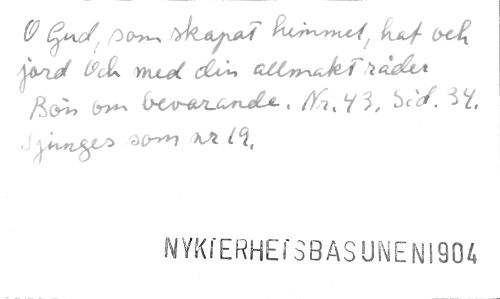 O Gud, som skapat himmel, haf och
jord Och med din allmakt råder
Bön om bevarande. Nr. 43. Sid. 34.
Sjunges som nr 19.
NYKTERHETSBASUNEN 1904